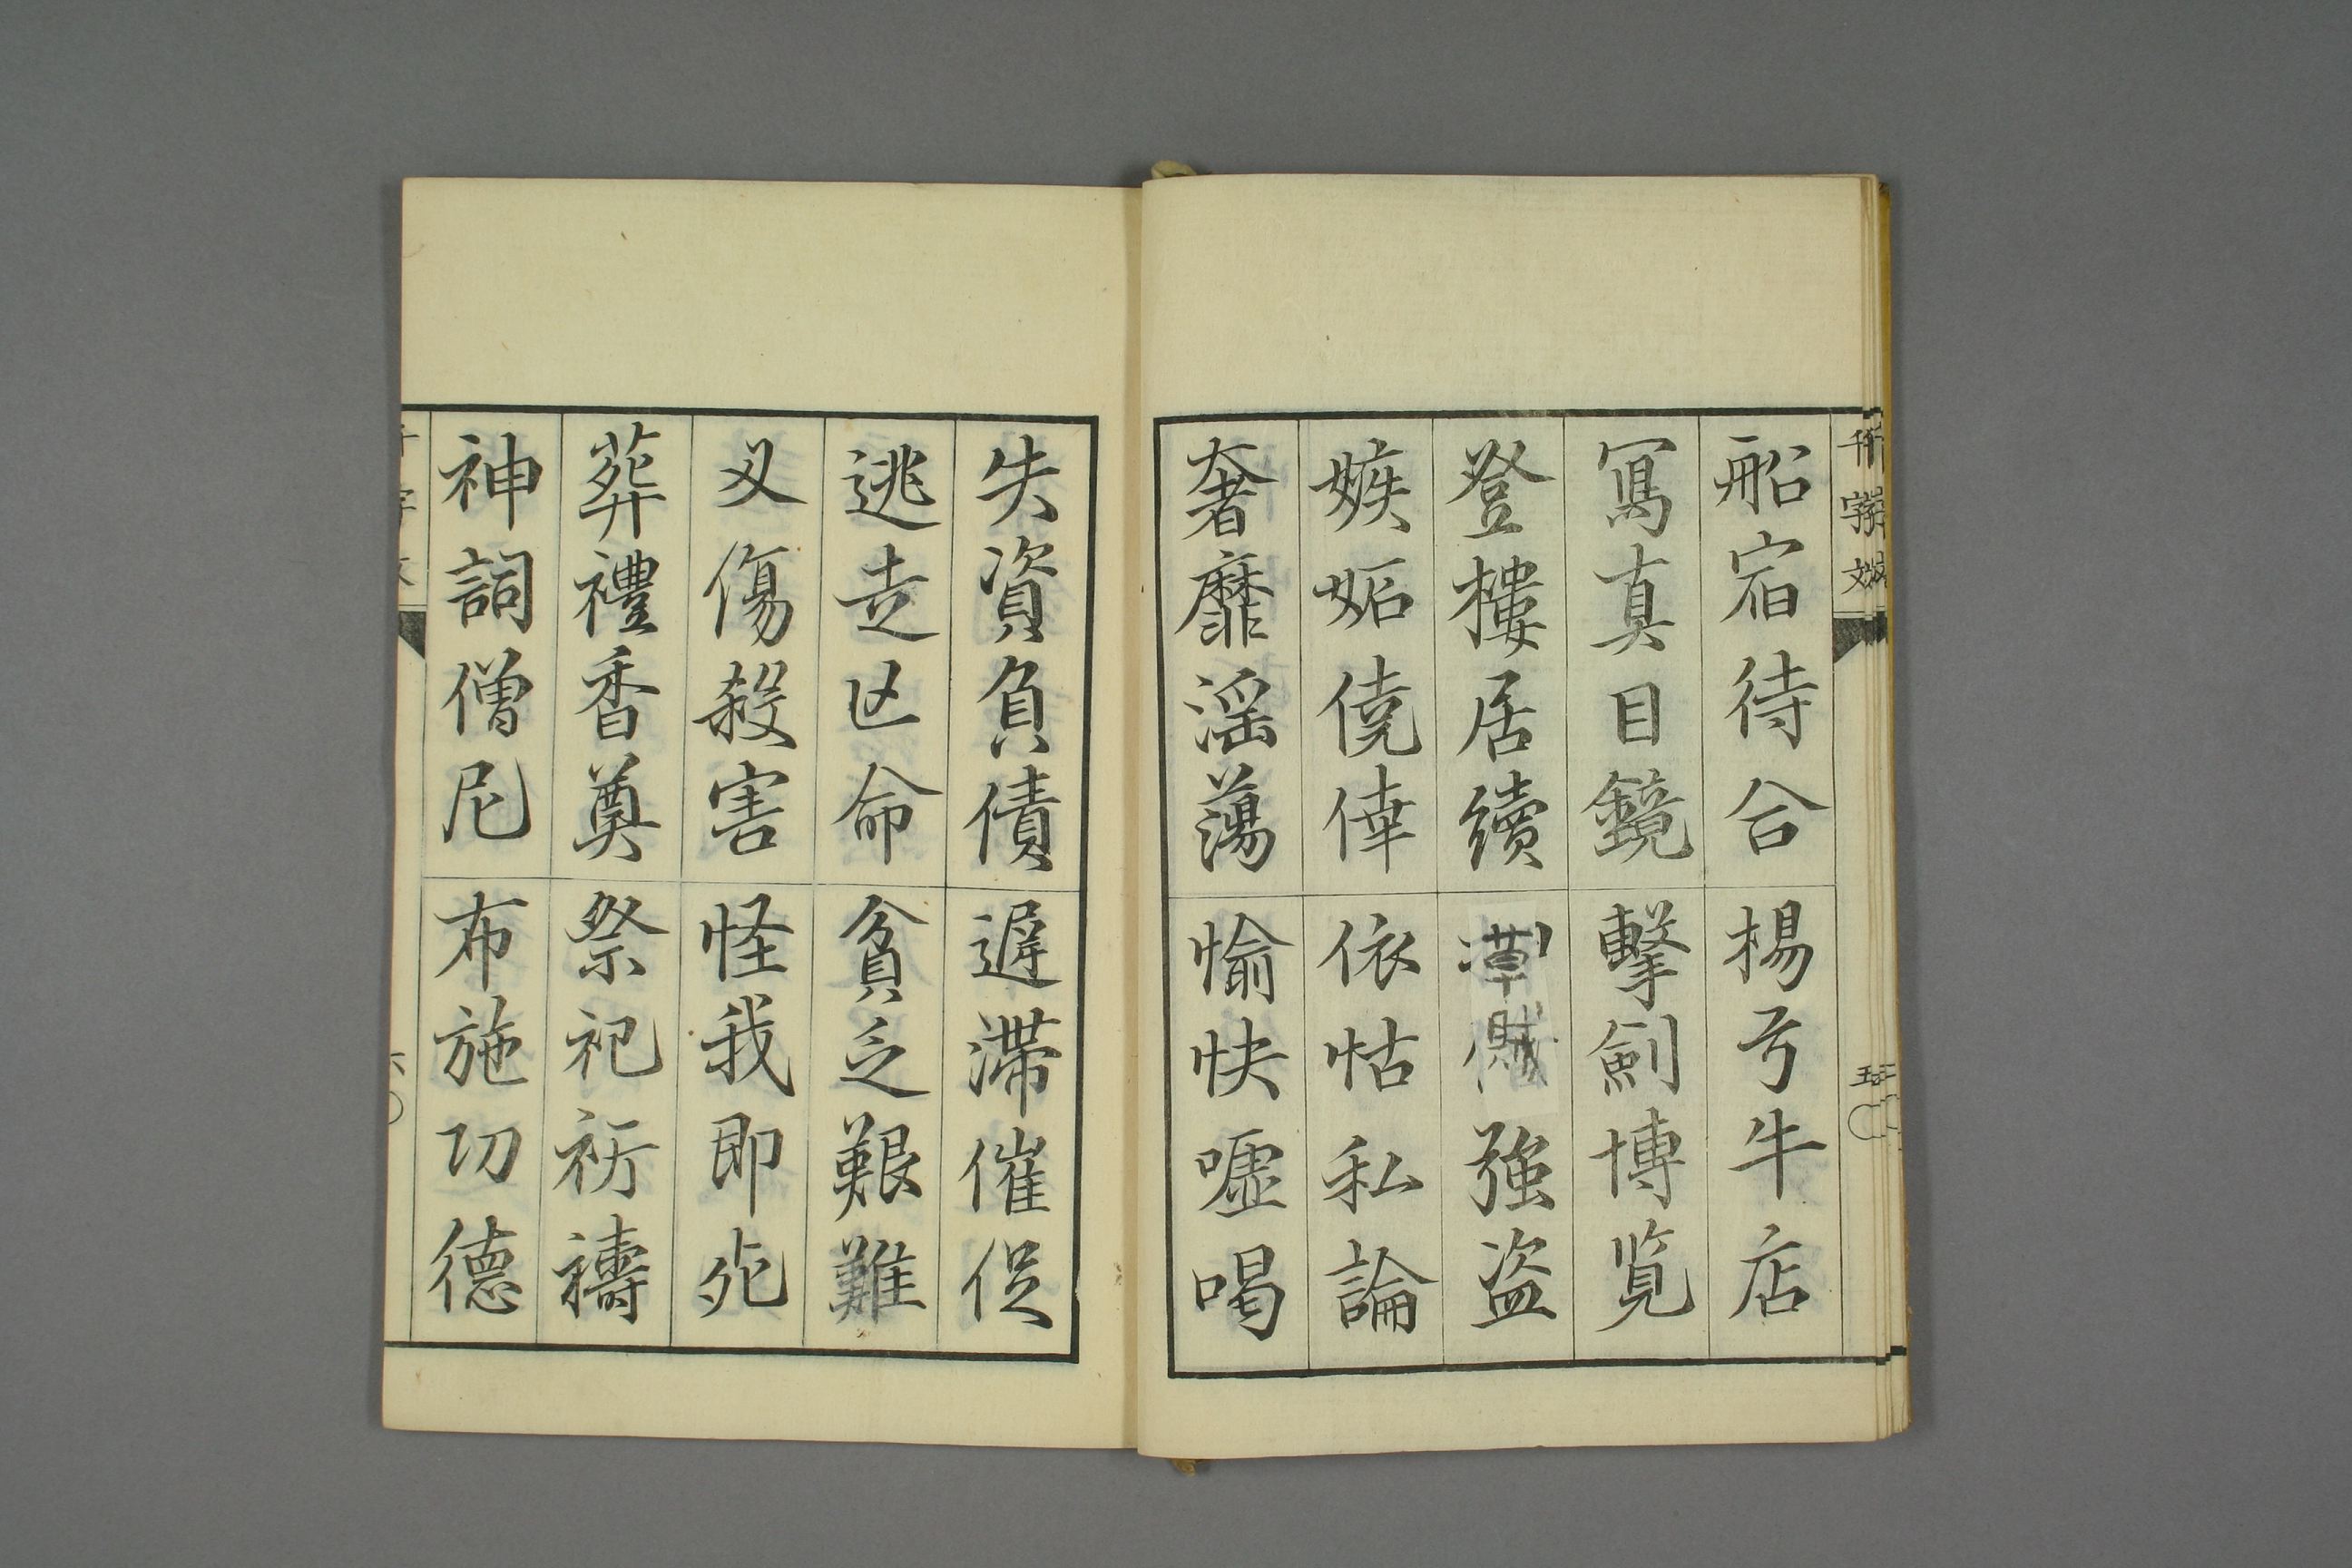 船宿待合楊弓牛店
冩真目鏡擊劍博覧
登樓居續強盗
嫉妬僥倖依怙私論
奢靡淫蕩愉快嘘喝
失資負債遅滞催促
逃走亡命貧乏艱難
又傷殺害怪我即死
葬禮香奠祭祀祈禱
神祠僧尼布施功德